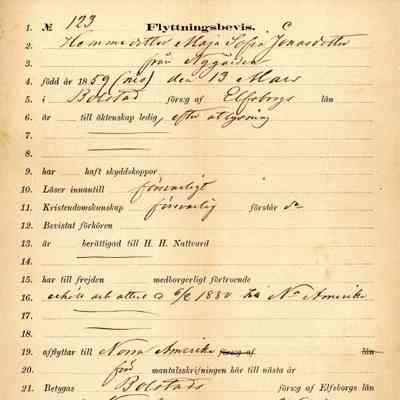 1. № 123 Flyttningsbevis. C
2. Hemmadotter Maja Sofia Jonasdotter
3. från Nygården
4. född år 1859 (nio) den 13 Mars
5. i Bolstad förs:g af Elfsborgs län
6. är till äktenskap ledig, efter aflysning
7.
8.
9. har haft skyddskoppor
10. Läser innantill försvarligt
11. Kristendomskunskap försvarlig förstår do
12. Bevistat förhören
13. är berättigad till H. H. Nattvard
14.
15. har till frejden medborgerligt förtroende
16. erhöll arb. attest d 9/2 1880 till N. Amerika
17.
18.
19. afflyttar till Norra Amerika förs:g af län
20. för mantalsskrifningen här till nästa år
21. Betygas Bolstads förs:g af Elfsborgs län